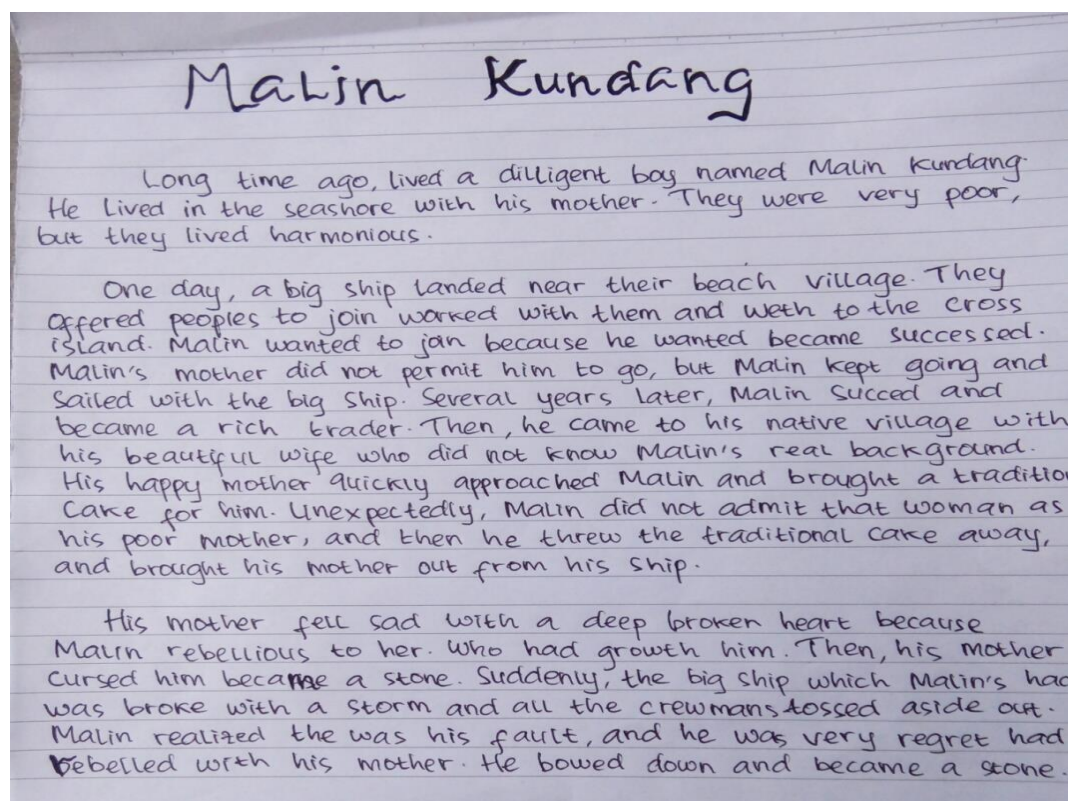 Malin Kundang
Long time ago, lived a dilligent boy named Malin Kundang.
He lived in the seashore with his mother. They were very poor,
but they lived harmonious.
One day, a big ship landed near their beach village. They
offered peoples to join worked with them and weth to the cross
island. Malin wanted to join because he wanted became successed.
Malin's mother did not permit him to go, but Malin kept going and
sailed with the big ship. Several years later, Malin succed and
became a rich trader. Then, he came to his native village with
his beautiful wife who did not know Malin's real background.
His happy mother quickly approached Malin and brought a traditio
cake for him. Unexpectedly, Malin did not admit that woman as
his poor mother, and then he threw the traditional cake away,
and brought his mother out from his ship.
His mother fell sad with a deep broken heart because
Malin rebellious to her. Who had growth him. Then, his mother
cursed him became a stone. Suddenly, the big ship which Malin's had
was broke with a storm and all the crewmans tossed aside out.
Malin realized the was his fault, and he was very regret had
rebelled with his mother. He bowed down and became a stone.